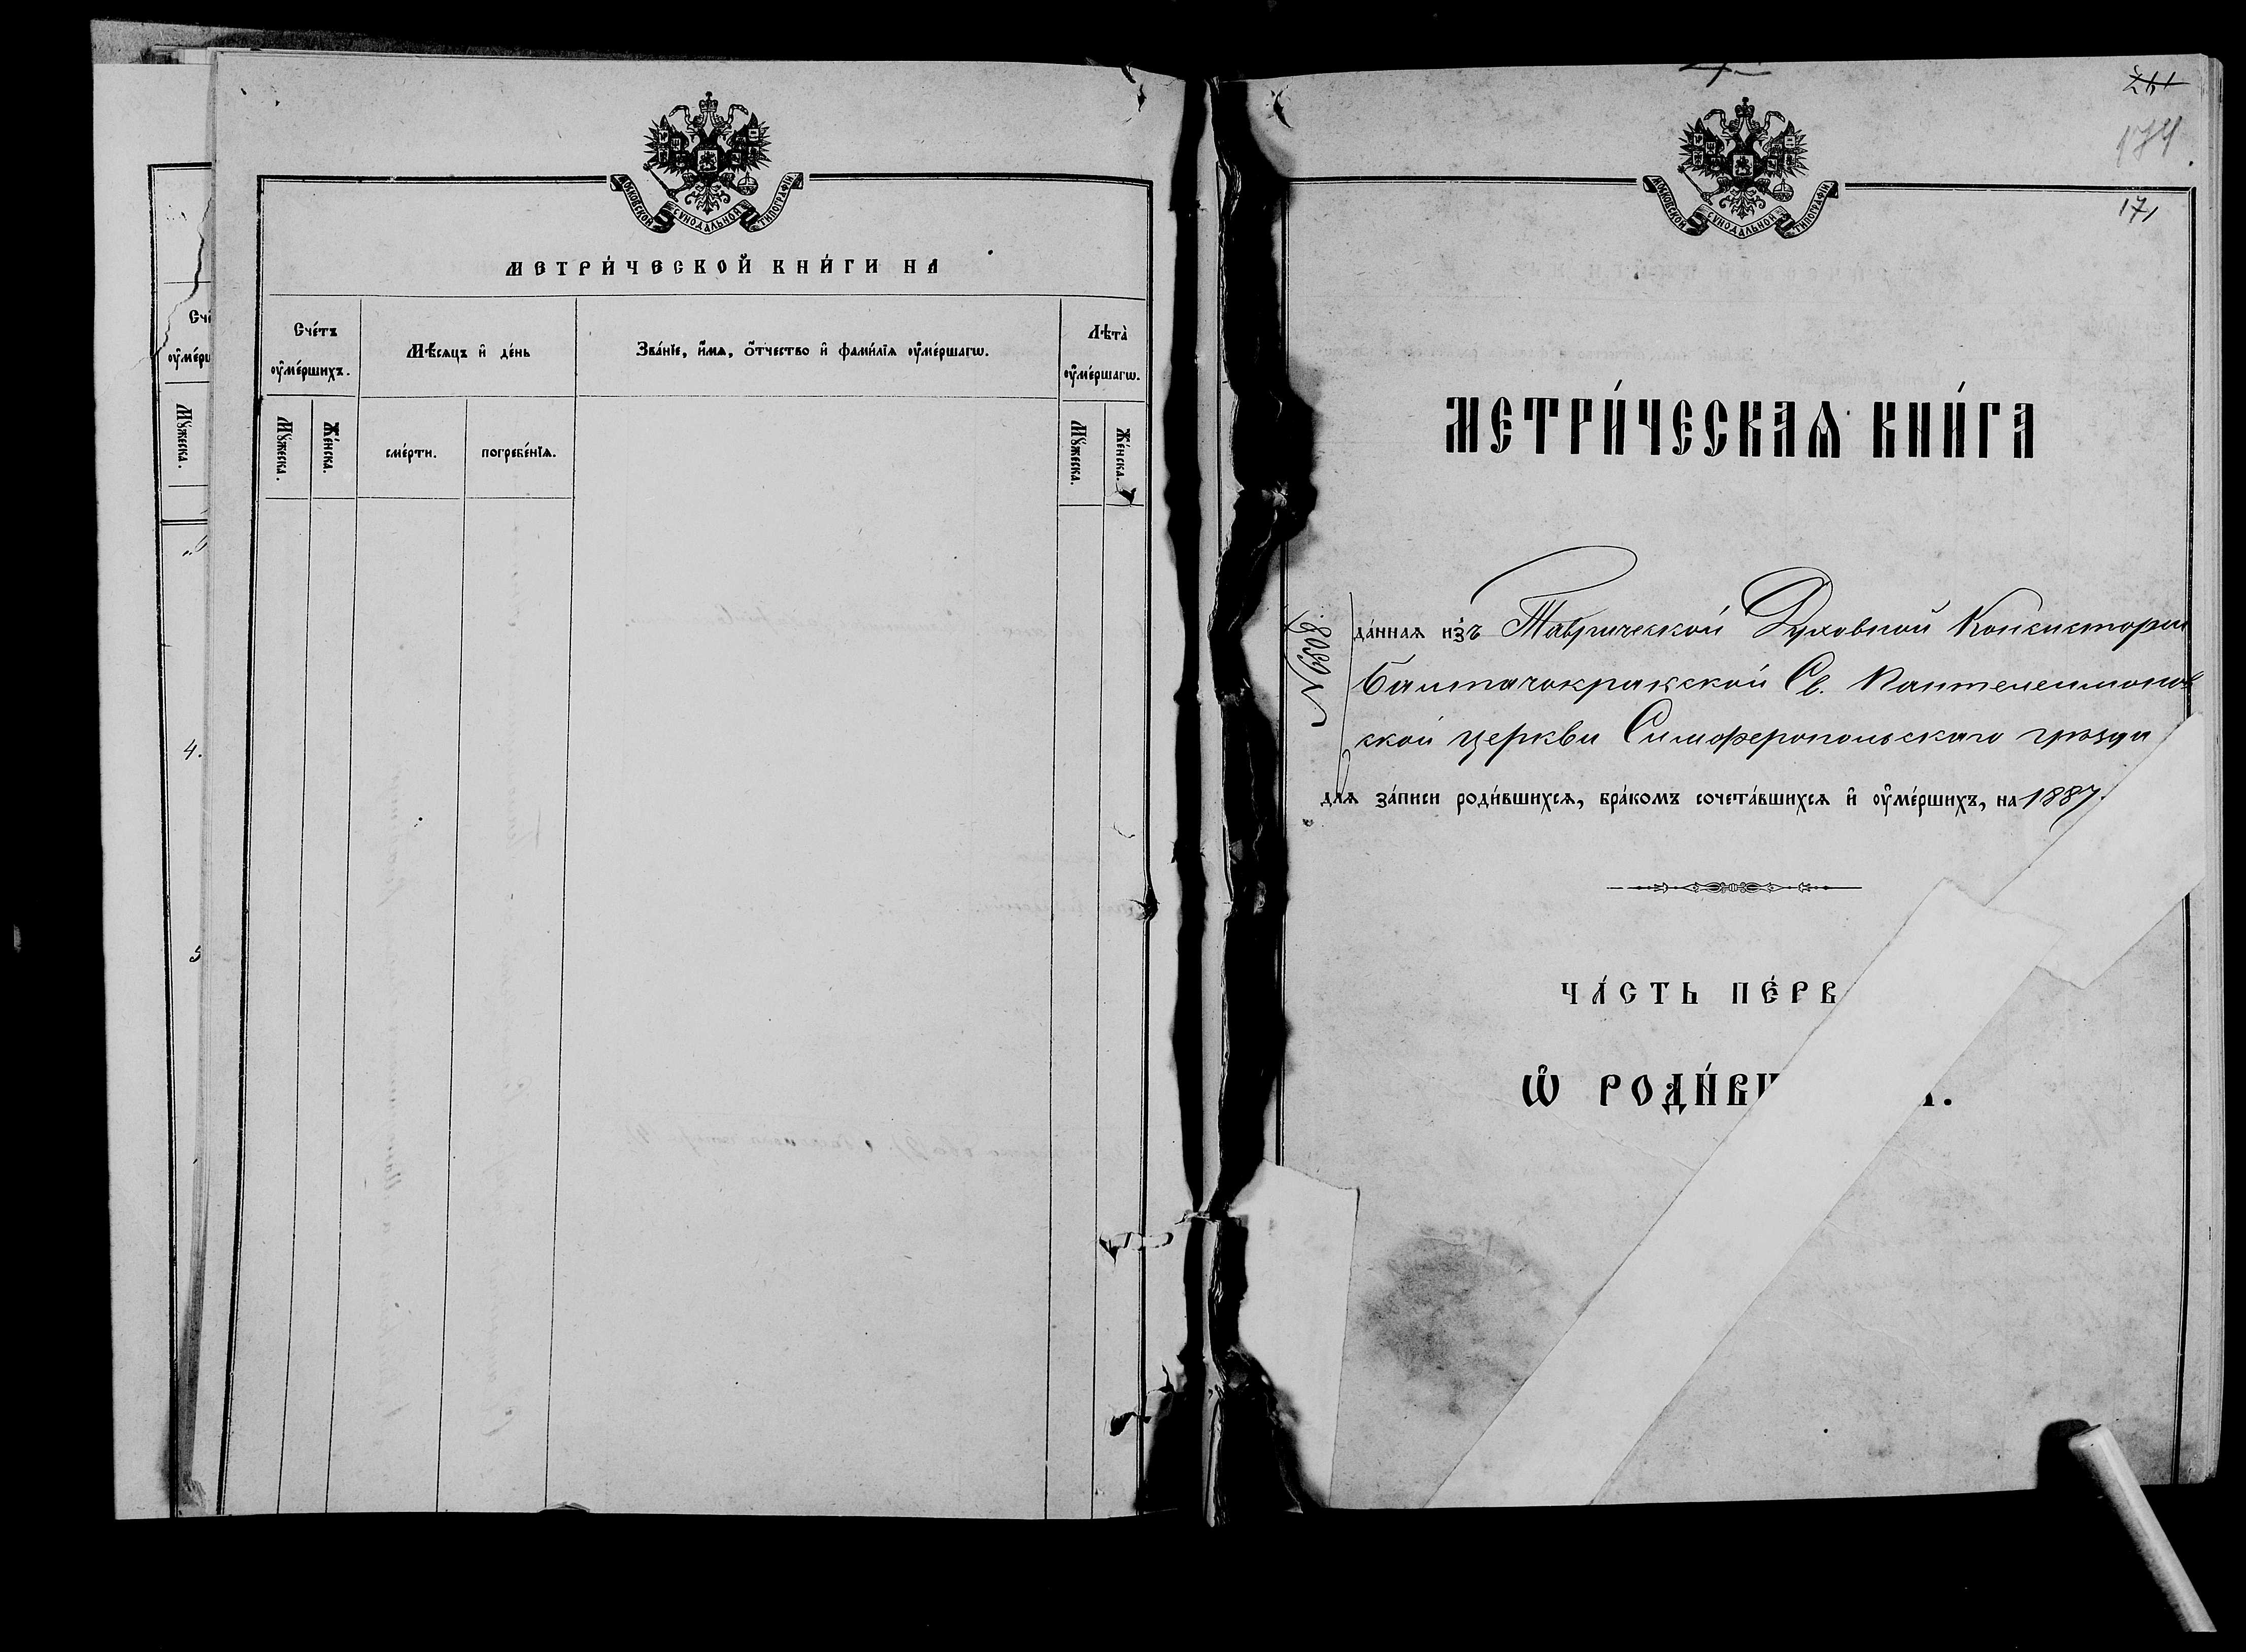 МОСКОВСКОЙ СѴНОДАЛЬНОЙ ТИПОГРАФІИ
МЕТРИ́ЧЕСКОЙ КНИ́ГИ НА
Сче́тъ ᲂу҆ме́ршихъ.
Мѣ́сяцъ и҆ де́нь
Зва́нїе, и҆́мѧ, ѻ҆́тчество и҆ фами́лїѧ ᲂу҆ме́ршагѡ.
Лѣ́та ᲂу҆ме́ршагѡ.
Мꙋ́жеска.
Же́нска.
сме́рти.
погребе́нїѧ.
Мꙋ́жеска.
Же́нска.
Мꙋ́жеска.
4.
5
261
174
171
МОСКОВСКОЙ СѴНОДАЛЬНОЙ ТИПОГРАФІИ
МЕТРИ́ЧЕСКАѦ КНИ́ГА
№ 9508
да́ннаѧ и҆зъ Таврической Духовной Консисторіи
Св. Пантелеимонов
ской церкви Симферопольскаго уѣзда
длѧ за́писи роди́вшихсѧ, бра́комъ сочета́вшихсѧ и҆ ᲂу҆ме́ршихъ, на 1887.
ЧА́СТЬ ПЕ́РВ
Ѡ҆ РОДИ́ВШ